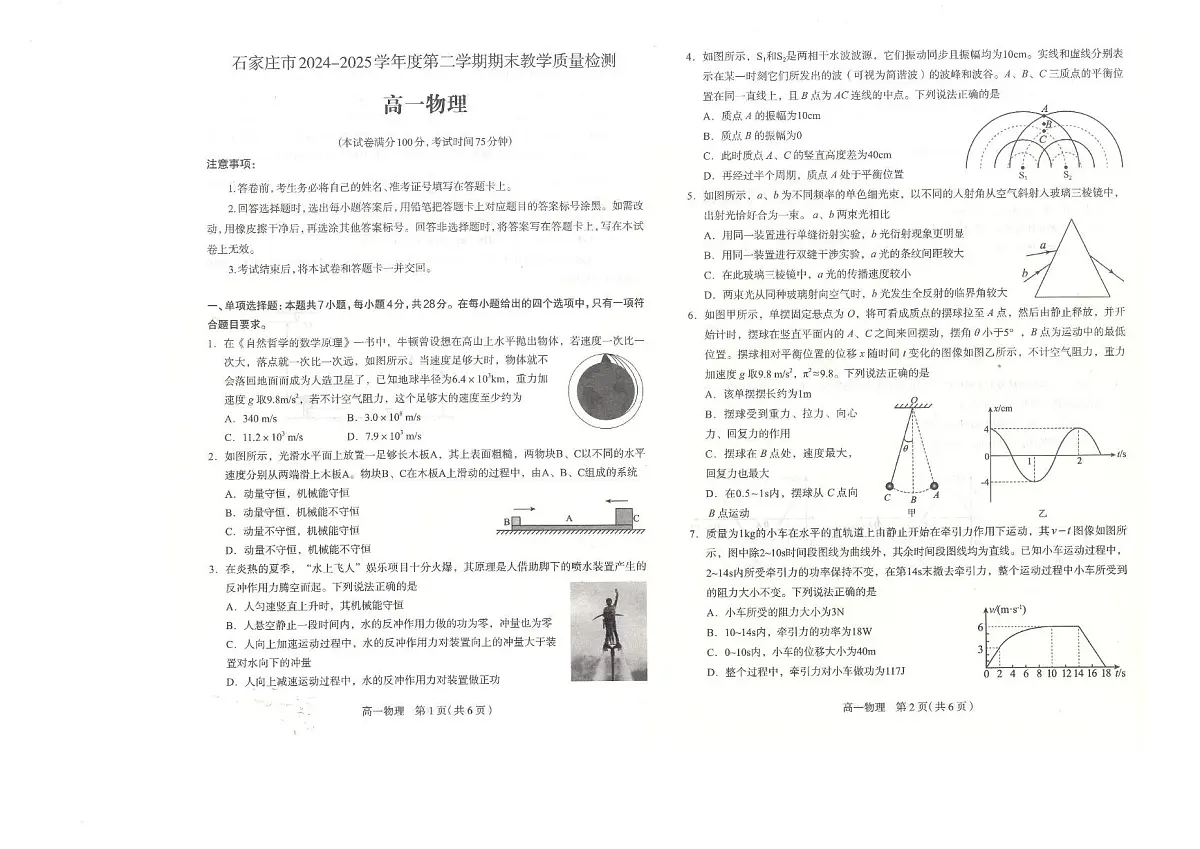 石家庄市2024-2025学年度第二学期期末教学质量检测
高一物理
(本试卷满分100分,考试时间75分钟)
注意事项:
1.答卷前,考生务必将自己的姓名、准考证号填写在答题卡上。
2.回答选择题时,选出每小题答案后,用铅笔把答题卡上对应题目的答案标号涂黑。如需改
动,用橡皮擦干净后,再选涂其他答案标号。回答非选择题时,将答案写在答题卡上,写在本试
卷上无效。
3.考试结束后,将本试卷和答题卡一并交回。
一、单项选择题:本题共7小题,每小题4分,共28分。在每小题给出的四个选项中,只有一项符
合题目要求。
1. 在《自然哲学的数学原理》一书中,牛顿曾设想在高山上水平抛出物体,若速度一次比一
次大,落点就一次比一次远,如图所示。当速度足够大时,物体就不
会落回地面而成为人造卫星了,已知地球半径为6.4×10³km,重力加
速度g取9.8m/s²,若不计空气阻力,这个足够大的速度至少约为
A. 340 m/s B. 3.0×10⁸ m/s
C. 11.2×10³ m/s D. 7.9×10³ m/s
2. 如图所示,光滑水平面上放置一足够长木板A,其上表面粗糙,两物块B、C以不同的水平
速度分别从两端滑上木板A。物块B、C在木板A上滑动的过程中,由A、B、C组成的系统
A. 动量守恒,机械能守恒
B. 动量守恒,机械能不守恒
C. 动量不守恒,机械能守恒
D. 动量不守恒,机械能不守恒
B A C
3. 在炎热的夏季,“水上飞人”娱乐项目十分火爆,其原理是人借助脚下的喷水装置产生的
反冲作用力腾空而起。下列说法正确的是
A. 人匀速竖直上升时,其机械能守恒
B. 人悬空静止一段时间内,水的反冲作用力做的功为零,冲量也为零
C. 人向上加速运动过程中,水的反冲作用力对装置向上的冲量大于装
置对水向下的冲量
D. 人向上减速运动过程中,水的反冲作用力对装置做正功
高一物理 第1页(共6页)
4. 如图所示,S₁和S₂是两相干水波波源,它们振动同步且振幅均为10cm。实线和虚线分别表
示在某一时刻它们所发出的波(可视为简谐波)的波峰和波谷。A、B、C三质点的平衡位
置在同一直线上,且B点为AC连线的中点。下列说法正确的是
A. 质点A的振幅为10cm
B. 质点B的振幅为0
C. 此时质点A、C的竖直高度差为40cm
D. 再经过半个周期,质点A处于平衡位置
A
B
C
S₁ S₂
5. 如图所示,a、b为不同频率的单色细光束,以不同的入射角从空气斜射入玻璃三棱镜中,
出射光恰好合为一束。a、b两束光相比
A. 用同一装置进行单缝衍射实验,b光衍射现象更明显
B. 用同一装置进行双缝干涉实验,a光的条纹间距较大
C. 在此玻璃三棱镜中,a光的传播速度较小
D. 两束光从同种玻璃射向空气时,b光发生全反射的临界角较大
a
b
6. 如图甲所示,单摆固定悬点为O,将可看成质点的摆球拉至A点,然后由静止释放,并开
始计时,摆球在竖直平面内的A、C之间来回摆动,摆角θ小于5°,B点为运动中的最低
位置。摆球相对平衡位置的位移x随时间t变化的图像如图乙所示,不计空气阻力,重力
加速度g取9.8 m/s²,π²≈9.8。下列说法正确的是
A. 该单摆摆长约为1m
B. 摆球受到重力、拉力、向心
力、回复力的作用
C. 摆球在B点处,速度最大,
回复力也最大
D. 在0.5~1s内,摆球从C点向
B点运动
O
θ
C B A
甲
x/cm
4
0 1 2 t/s
-4
乙
7. 质量为1kg的小车在水平的直轨道上由静止开始在牵引力作用下运动,其v-t图像如图所
示,图中除2~10s时间段图线为曲线外,其余时间段图线均为直线。已知小车运动过程中,
2~14s内所受牵引力的功率保持不变,在第14s末撤去牵引力,整个运动过程中小车所受到
的阻力大小不变。下列说法正确的是
A. 小车所受的阻力大小为3N
B. 10~14s内,牵引力的功率为18W
C. 0~10s内,小车的位移大小为40m
D. 整个过程中,牵引力对小车做功为117J
v/(m·s⁻¹)
6
3
0 2 4 6 8 10 12 14 16 18 t/s
高一物理 第2页(共6页)